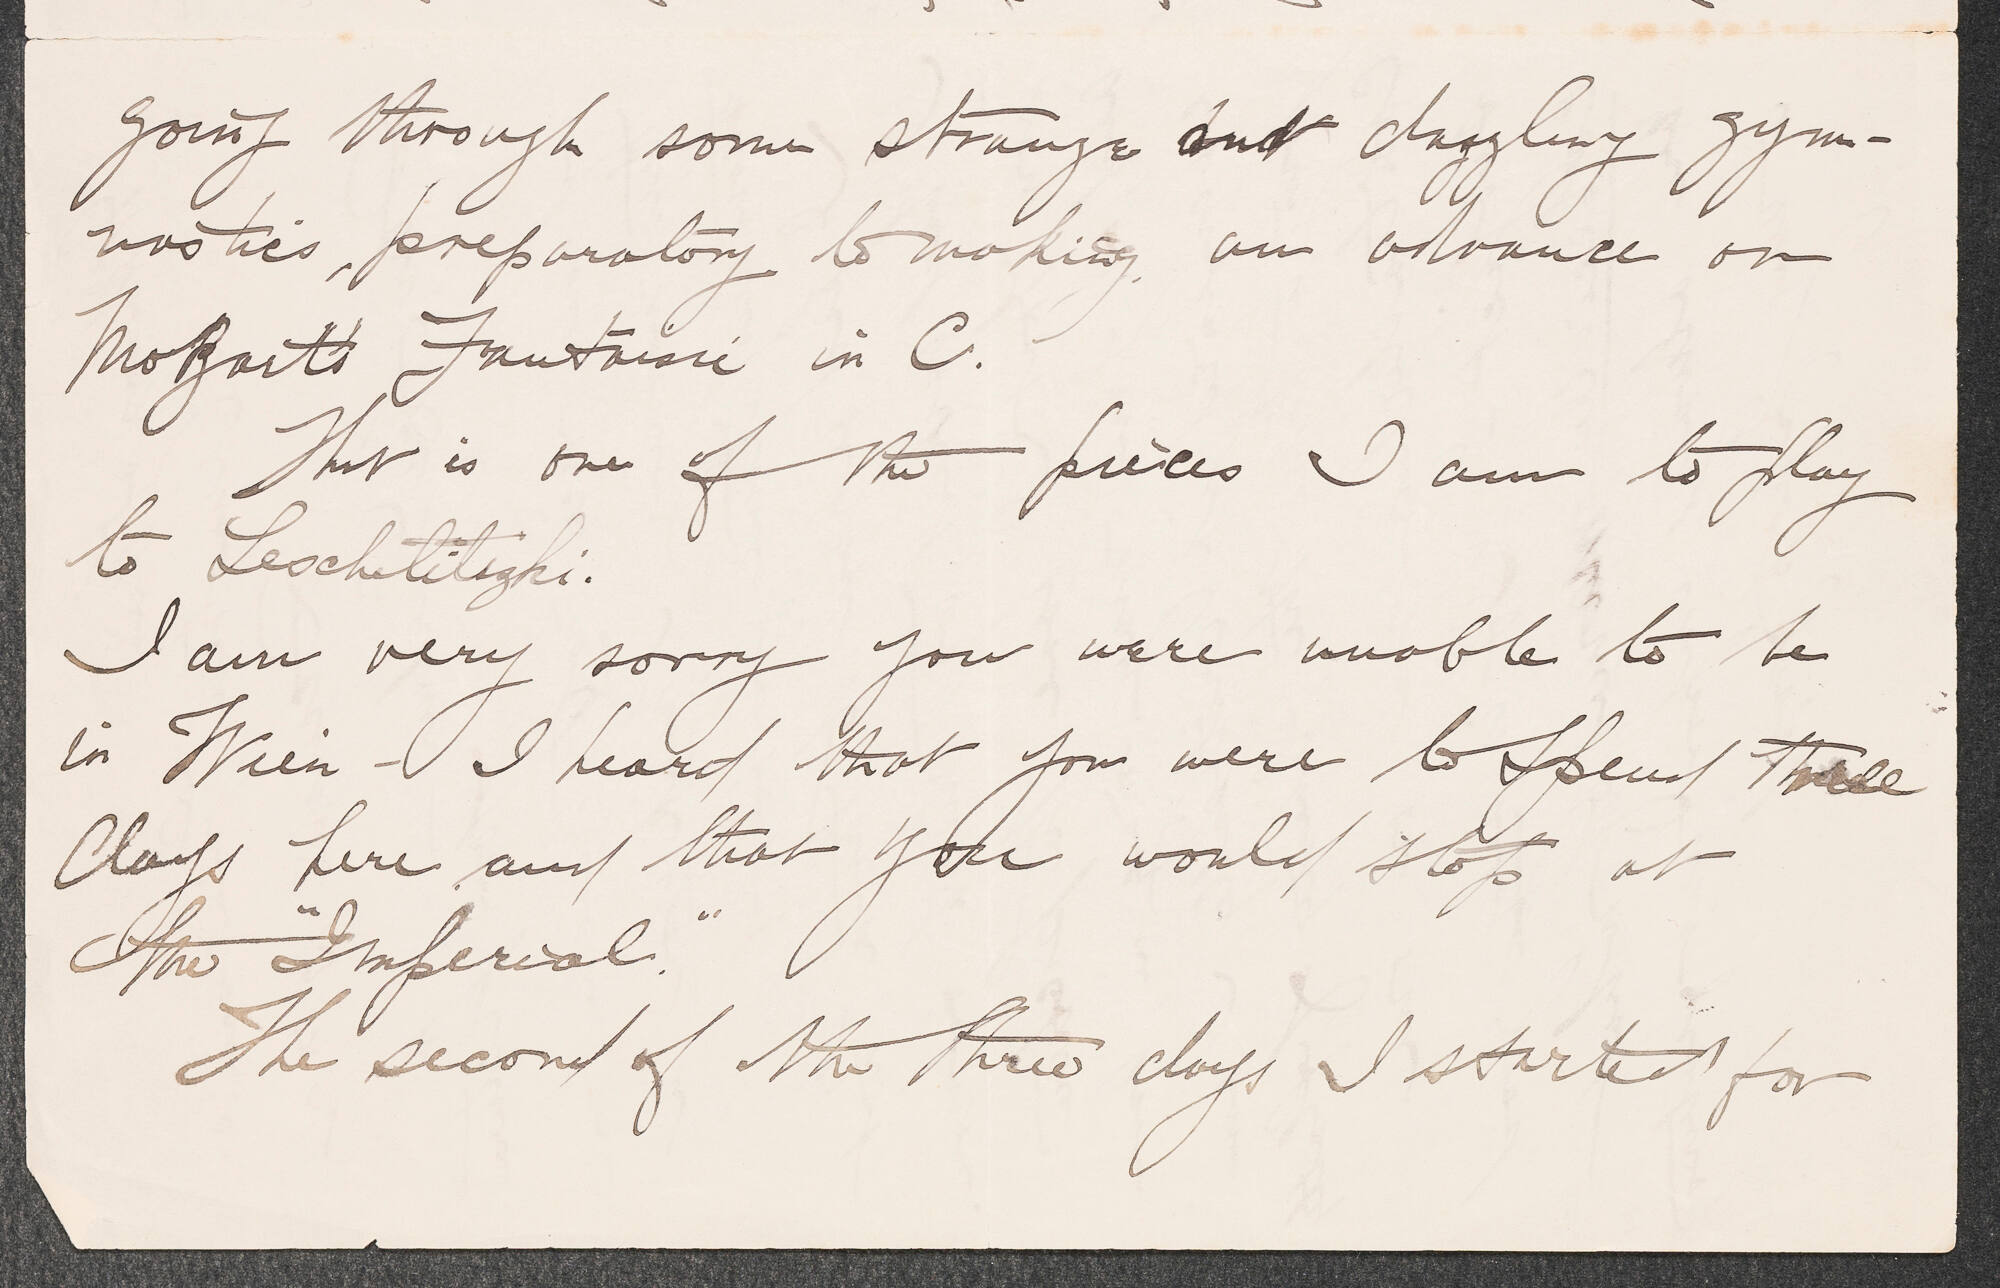 going through some strange but dazzling gym-
nastics, preparatory to making an advance on
Mozart's Fantaisie in C.
That is one of the pieces I am to play
to Leschetitszki.
I am very sorry you were unable to be
in Wien - I heard that you were to spend three
days here and that you would stop at
the "Imperial."
The second of the three days I started for